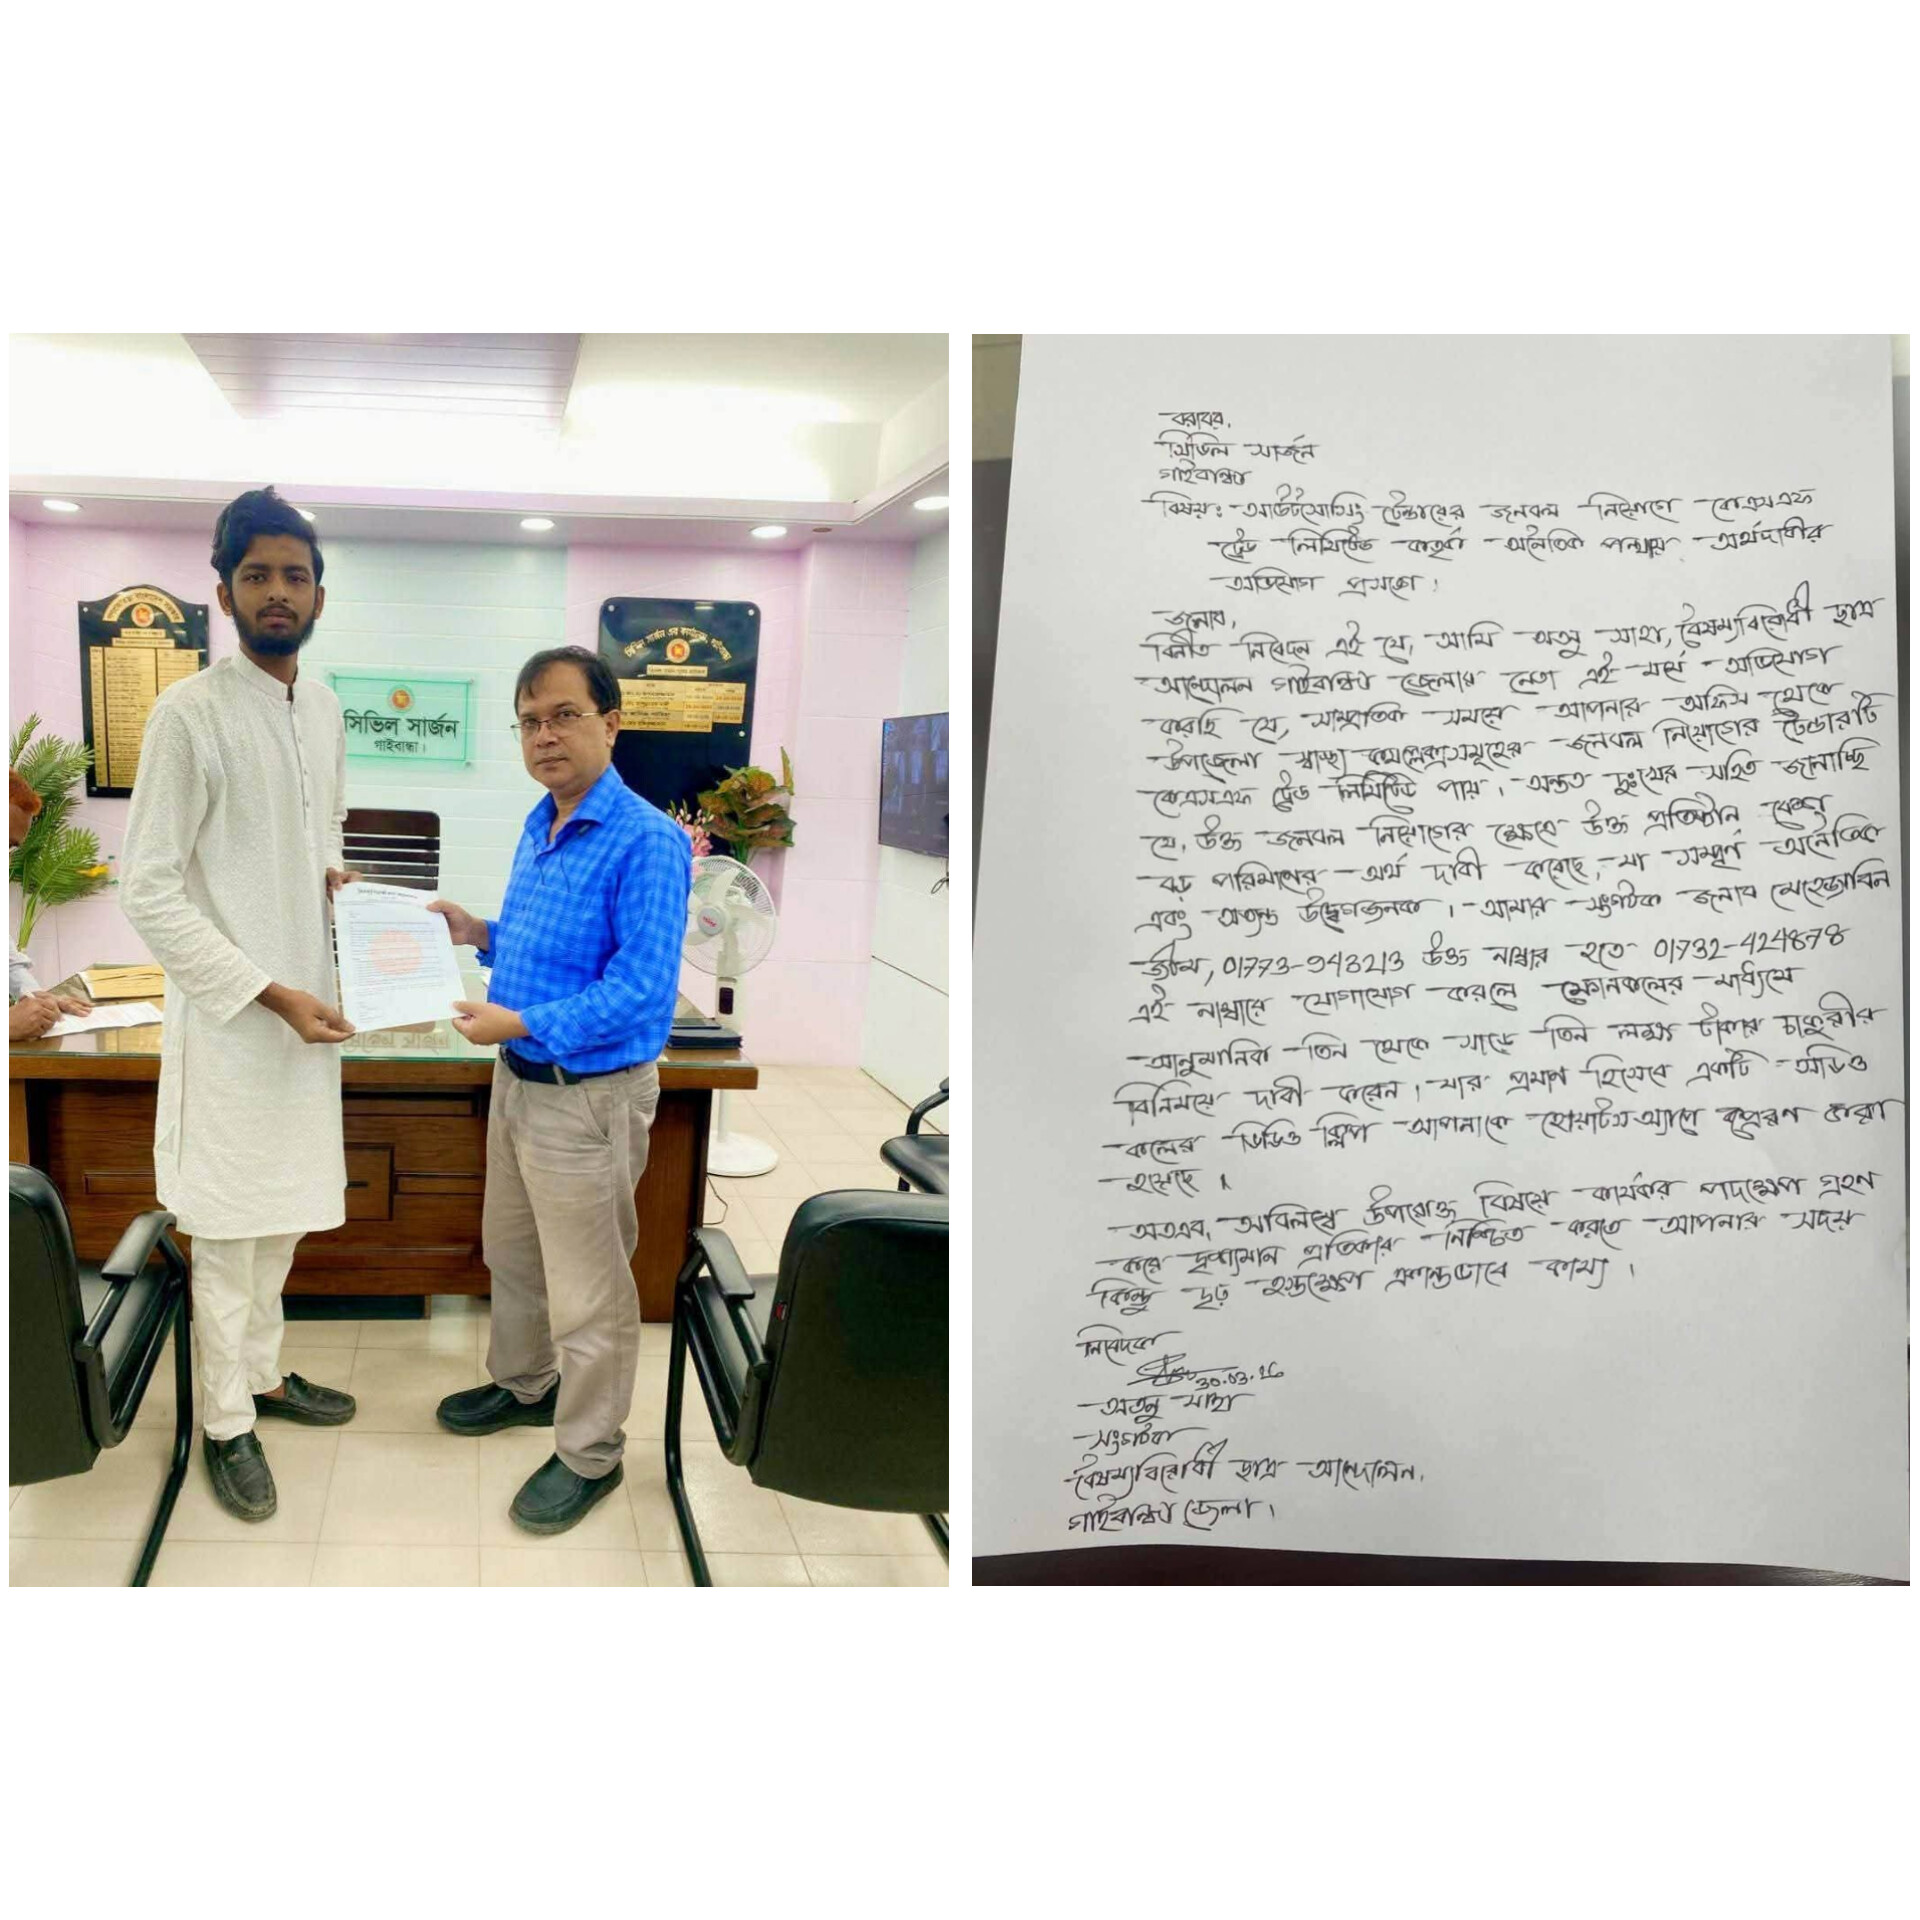 সিভিল সার্জন
গাইবান্ধা।
সিভিল সার্জন এর কার্যালয়, গাইবান্ধা
বরাবর,
সিভিল সার্জন
গাইবান্ধা
বিষয়: আউটসোর্সিং টেন্ডারের জনবল নিয়োগে কেএসএফ
ট্রেড লিমিটেড কর্তৃক অনৈতিক পন্থায় অর্থদাবীর
অভিযোগ প্রসঙ্গে।
জনাব,
বিনীত নিবেদন এই যে, আমি অতনু সাহা, বৈষম্যবিরোধী ছাত্র
আন্দোলন গাইবান্ধা জেলার নেতা এই মর্মে অভিযোগ
করছি যে, সাম্প্রতিক সময়ে আপনার অফিস থেকে
উপজেলা স্বাস্থ্য কমপ্লেক্সসমূহের জনবল নিয়োগের টেন্ডারটি
কেএসএফ ট্রেড লিমিটেড পায়। অন্তত দুঃখের সহিত জানাচ্ছি
যে, উক্ত জনবল নিয়োগের ক্ষেত্রে উক্ত প্রতিষ্ঠান বেশ
বড় পরিমাণের অর্থ দাবী করেছে, যা সম্পূর্ণ অনৈতিক
এবং অত্যন্ত উদ্বেগজনক। আমার সংগঠক জনাব মেহেজাবিন
জীম, 01773-943213 উক্ত নাম্বার হতে 01732-424878
এই নাম্বারে যোগাযোগ করলে ফোনকলের মাধ্যমে
আনুমানিক তিন থেকে সাড়ে তিন লক্ষ টাকার চাকুরীর
বিনিময়ে দাবী করেন। যার প্রমাণ হিসেবে একটি অডিও
কলের ভিডিও ক্লিপ আপনাকে হোয়াটসঅ্যাপে প্রেরণ করা
হয়েছে।
অতএব, অবিলম্বে উপরোক্ত বিষয়ে কার্যকর পদক্ষেপ গ্রহণ
করে দৃশ্যমান প্রতিকার নিশ্চিত করতে আপনার সদয়
কিন্তু দৃঢ় হস্তক্ষেপ একান্তভাবে কাম্য।
নিবেদক
30.03.26
অতনু সাহা
সংগঠক
বৈষম্যবিরোধী ছাত্র আন্দোলন,
গাইবান্ধা জেলা।